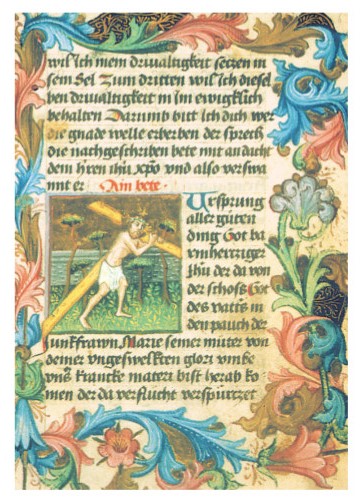 wil ich mein driualtigkeit setzen in
sein sel Zum dritten wil ich diesel
ben driualtigkeit in im ewigklich
behalten Darumb bitt ich dich wer
die gnade welle erberben der sprech
die nachgeschriben bete mit andacht
dem h'ren ihu xpo vnd also verswa
nnt er Ain bete
Ursprung
aller güten
ding Got ba
rmhertziger
ihu der da von
der schoss Got
des vatts in
den pauch der
iunkfrawn Marie seiner muter von
deiner vngeswelkten glori vmbe
vns krancke materi bist herab ko
men der da verflucht verspürtzet